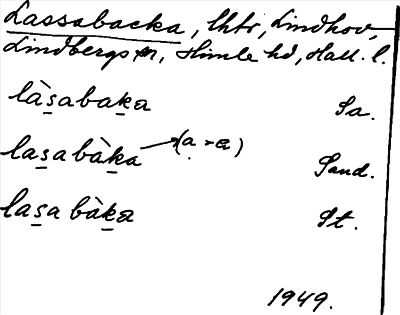 Lassabacka, lhtr, Lindhov,
Lindbergs sn, Himle hd, Hall. l.
làs̲abak̲a Sa.
las̲abàk̲a →(a - a) Sand.
las̲abàk̲a St.
1949.